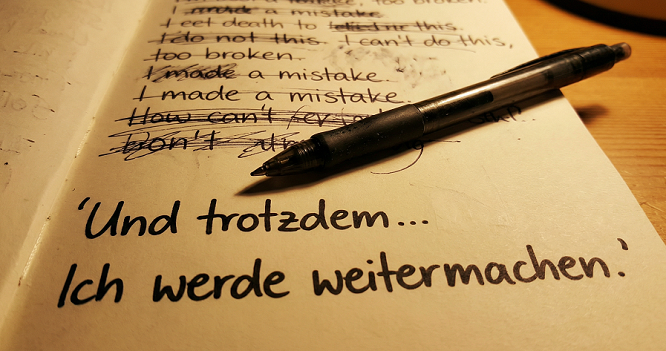 a mistake
I eet death to
I do not this. I can't do this,
too broken.
I made a mistake.
I made a mistake.
How can't
Don't
'Und trotzdem...
Ich werde weitermachen.'